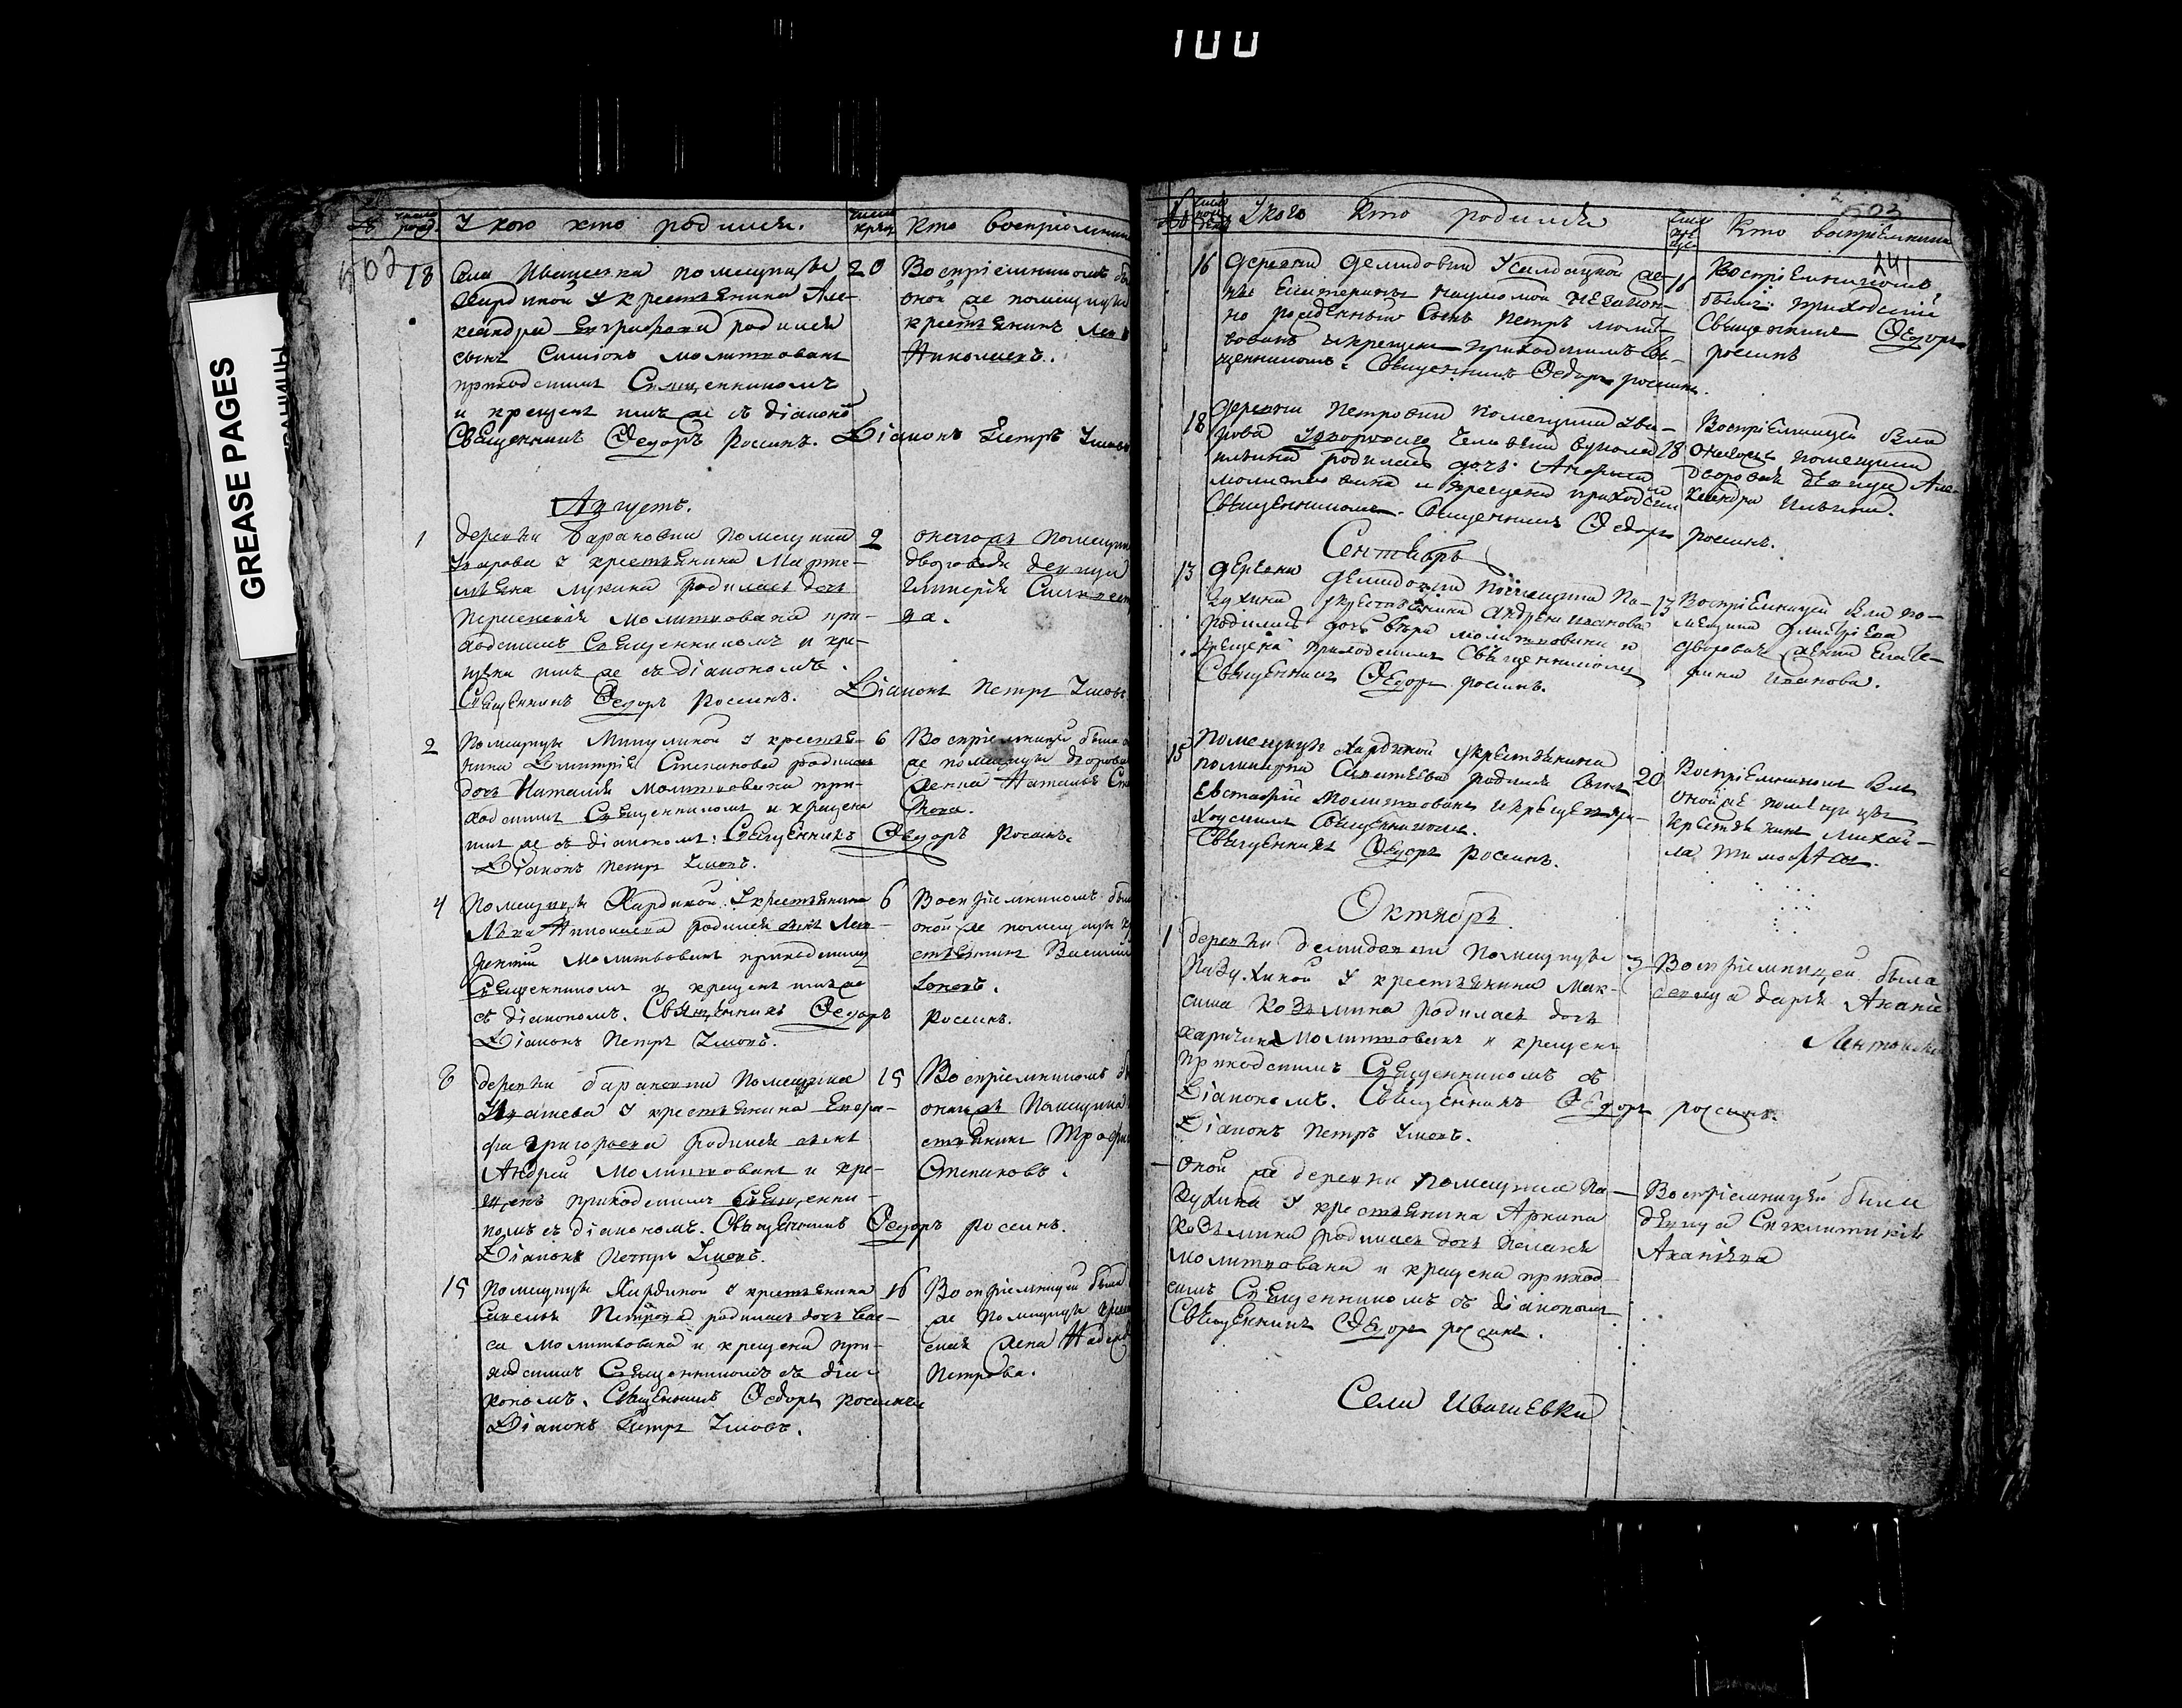 100
GREASE PAGES
число рожд.
У кого кто родился.
число крещ
Кто восприемник
502
18
Села Ивашевки помещицы
20
Хардиной у крестьянина Але-
ксандра Евграфова родился
сынъ Симионъ молитвованъ
приходскимъ Священникомъ
и крещенъ имъ же съ діакономъ
Священникъ Федоръ Россинъ.
Діаконъ Петръ
Воспріемникомъ
оной же помещицы
крестьянинъ
Николаевъ.
Августъ.
1
деревни Барановки помещика
2
Уварова у крестьянина Марте-
мьяна Лукина родилась дочь
молитвована при-
ходскимъ Священникомъ и кре-
щена имъ же съ діакономъ.
Священникъ Федоръ Россинъ.
Діаконъ Петръ
онагожъ помещика
дворовая девица
Гликерія
2
Помещицы Микулиной у крестья-
6
нина Димитрія Степанова родилась
дочь Наталія молитвована при-
ходскимъ Священникомъ и крещена
имъ же съ діакономъ: Священникъ Федоръ Россинъ.
Діаконъ Петръ
Воспріемницей была
же помещицы дворовая
женка Наталья
4
Помещицы Хардиной у крестьянина
6
Льва Николаева родился сынъ Лав-
рентій молитвованъ приходскимъ
Священникомъ и крещенъ имъ же
съ діакономъ. Священникъ Федоръ
Россинъ.
Діаконъ Петръ
Воспріемникомъ
оной же помещицы
8
деревни Барановки помещика
15
у крестьянина Евгра-
фа Григорьева родился сынъ
Андрей молитвованъ и кре-
щенъ приходскимъ Священни-
комъ съ діакономъ. Священникъ Федоръ Россинъ.
Діаконъ Петръ
Воспріемникомъ
онагожъ помещика
Степановъ.
15
Помещицы Хардиной у крестьянина
16
Савелья Петрова родилась дочь Вас-
са молитвована и крещена при-
ходскимъ Священникомъ съ діа-
кономъ. Священникъ Федоръ Россинъ
Діаконъ Петръ
Воспріемницей была
же помещицы
жена
Петрова.
У кого кто родился
Кто воспріемникъ
503
241
16
деревни Демидовки у солдатской же-
16
ны Екатерины Наумовой незакон-
но рожденный сынъ Петръ молит-
вованъ и крещенъ приходскимъ Свя-
щенникомъ: Священникъ Федоръ Россинъ
Воспріемникомъ
былъ: приходскій
Священникъ Федоръ
Россинъ
18
деревни Петровки помещика Ува-
18
рова у дворового человека
Ильина родилась дочь Анфиса
молитвована и крещена приходскимъ
Священникомъ. Священникъ Федоръ Россинъ.
Воспріемницей была
онагожъ помещика
дворовая девица Але-
ксандра Ильина.
Сентябрь
13
деревни Демидовки помещика Па-
17
зухина у крестьянина Андрея Иванова
родилась дочь Вера молитвована и
крещена приходскимъ Священникомъ
Священникъ Федоръ Россинъ.
Воспріемницей была по-
мещика Дмитріева
дворовая женка Екате-
рина Иванова.
15
Помещицы Хардиной у крестьянина
20
поликарпа родился сынъ
Евстафій молитвованъ и крещенъ при-
ходскимъ Священникомъ.
Священникъ Федоръ Россинъ.
Воспріемникомъ былъ
оной же помещицы
крестьянинъ Михай-
ла Тимофеевъ.
Октябрь
1
деревни Демидовки помещицы
3
Пазухиной у крестьянина Мак-
сима Козьмина родилась дочь
Харитина молитвована и крещена
приходскимъ Священникомъ съ
Діакономъ. Священникъ Федоръ Россинъ.
Діаконъ Петръ
Воспріемницей была
девица Дарья
Оной же деревни помещика Па-
зухина у крестьянина Архипа
Козьмина родилась дочь Пелагея
молитвована и крещена приход-
скимъ Священникомъ съ діакономъ
Священникъ Федоръ Россинъ.
Воспріемницей была
девица Синклитикія
Села Ивашевки